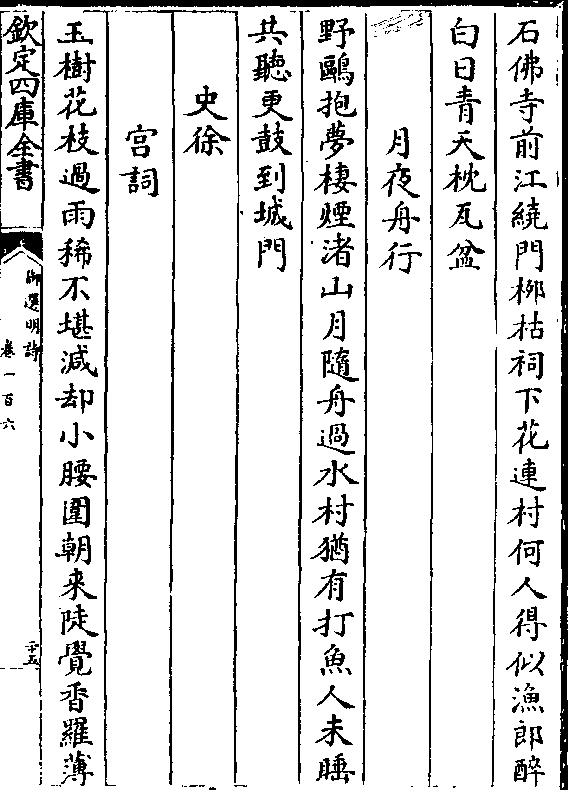 石佛寺前江繞門柳枯祠下花連村何人得似漁郎醉
白日青天枕瓦盆
月夜舟行
野鷗抱夢棲煙渚山月隨舟過水村猶有打魚人未睡
共聽更鼓到城門
史徐
宮詞
玉樹花枝過雨稀不堪減却小腰圍朝来陡覺香羅薄
欽定四庫全書
御選明詩
卷一百六
二十五